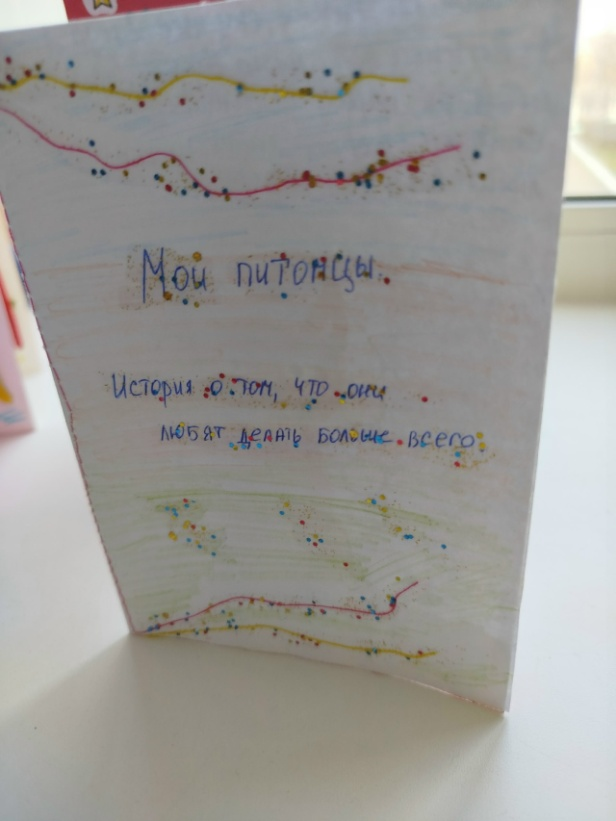 Мои питомцы.
История о том, что они
любят делать больше всего